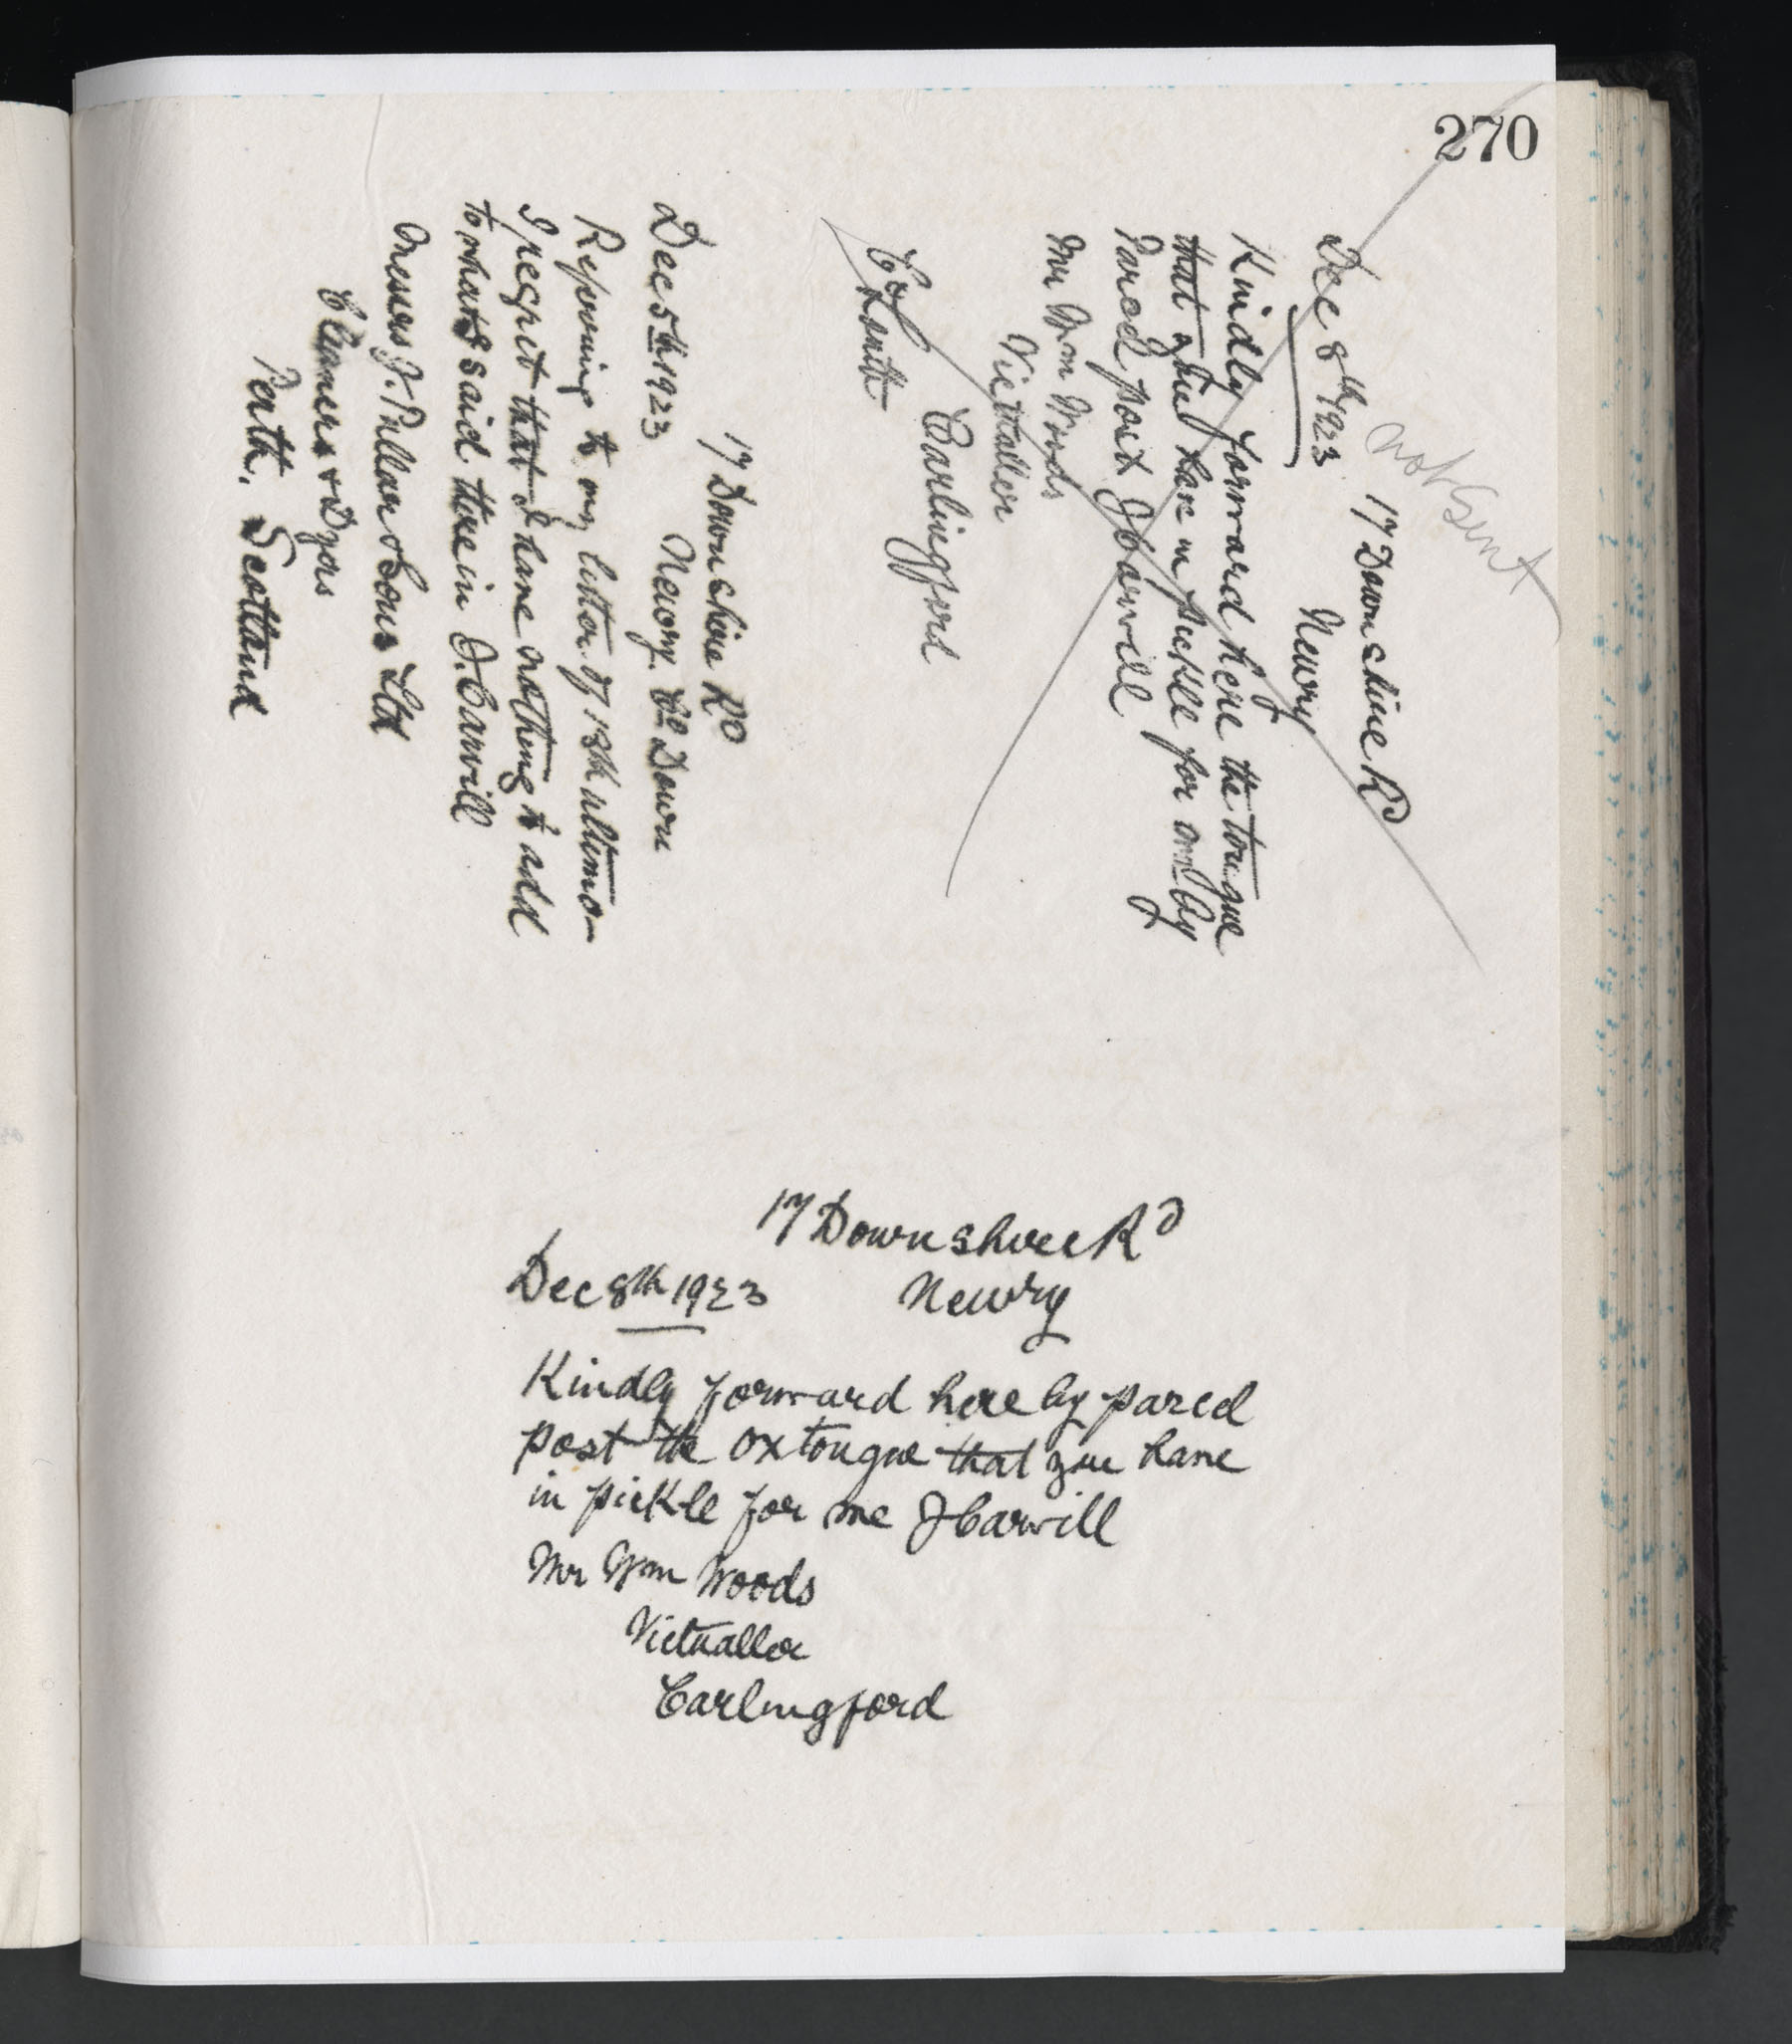 270
not Sent
17 Downshire Rd
Dec 8th 1923 Newry
Kindly forward here the tongue
that you have in pickle for me by
Parcel post J Carvill
Mr Wm Woods
Victualler
Carlingford
Co Louth
17 Downshire Rd
Dec 5th 1923 Newry. Co Down
Referring to my letter of 13th ultimo
I regret that I have nothing to add
to what I said therein J. Carvill
Messrs J. Pullar & Sons Ltd
Cleaners & Dyers
Perth. Scotland
17 Downshire Rd
Dec 8th 1923 Newry
Kindly forward here by parcel
post the ox tongue that you have
in pickle for me J Carvill
Mr Wm Woods
Victualler
Carlingford